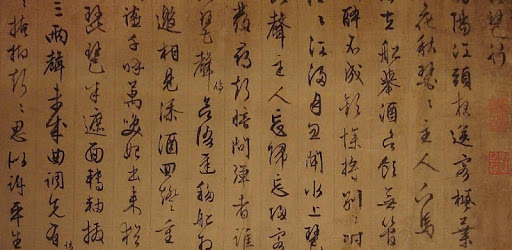 琵琶行
陽江頭夜送客楓葉
花秋瑟〻主人下馬
在船舉酒欲飲無管
醉不成歡慘將別〻時
〻江浸月忽聞水上琵
聲主人忘歸客
發尋聲暗問彈者誰
琶聲停欲語遲移船相
邀相見添酒回燈重
宴千呼萬喚始出來猶
琵琶半遮面轉軸撥
三兩聲未成曲調先有情
〻掩抑聲〻思似訴平生